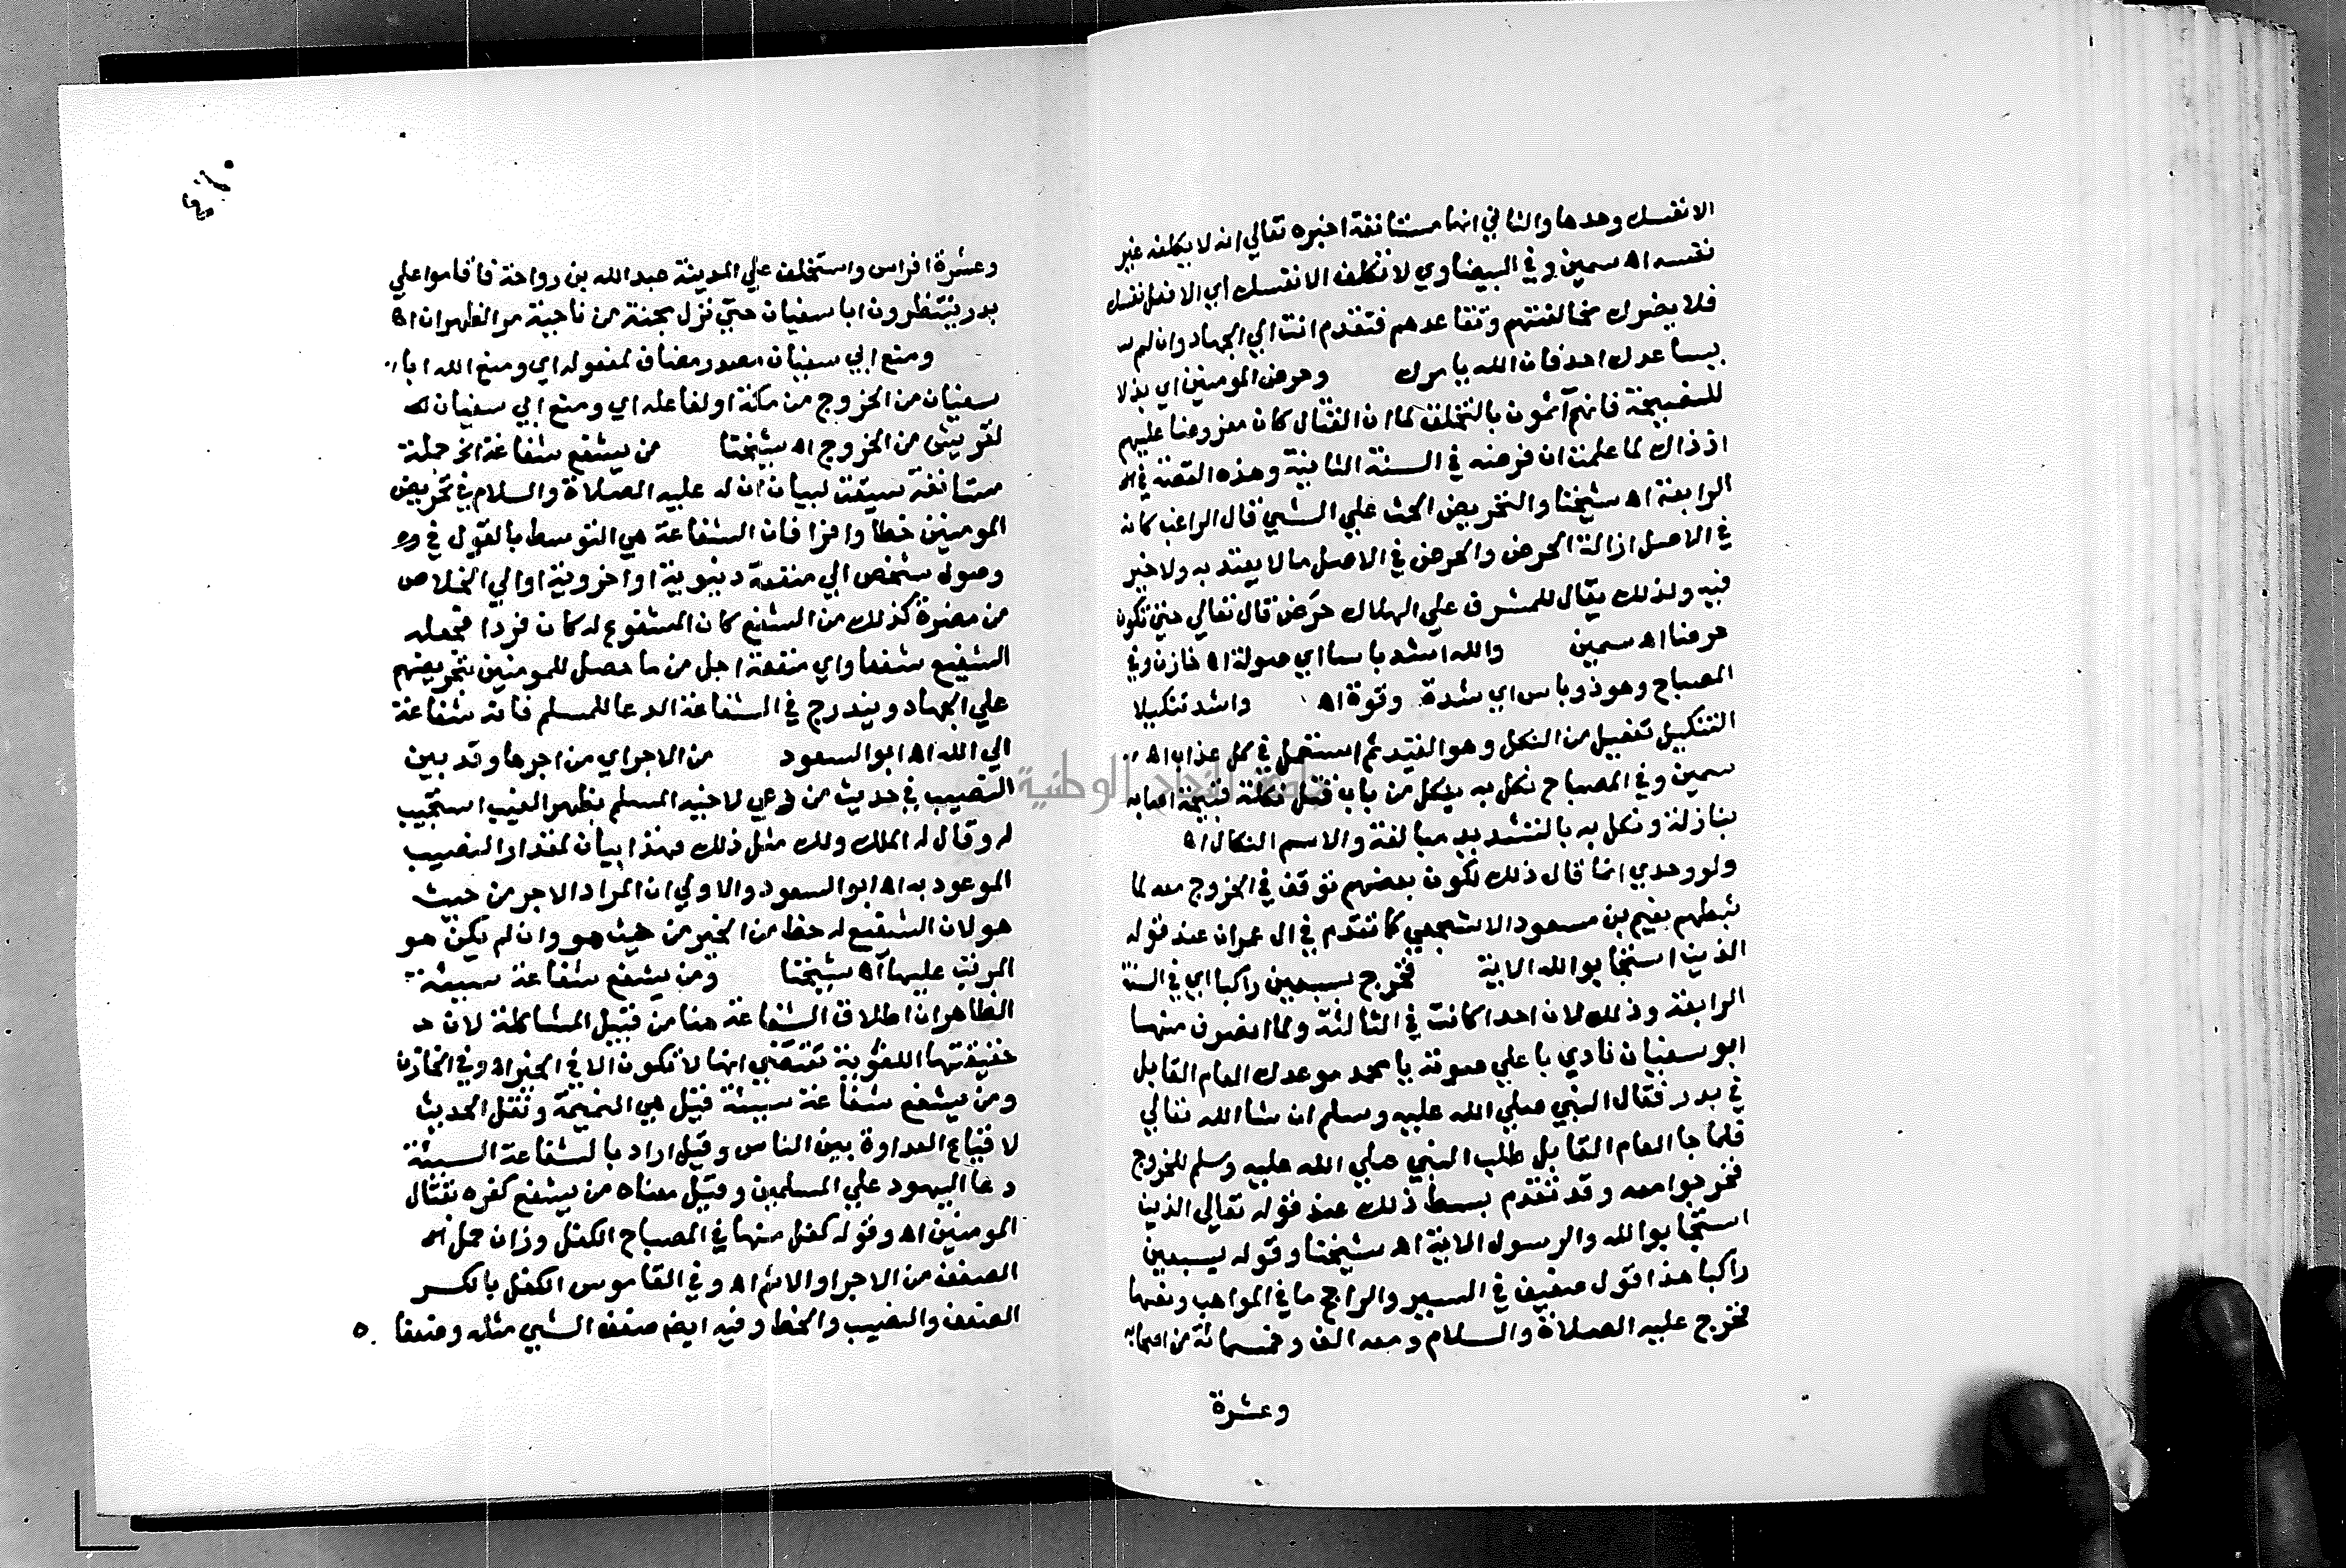 الا نفسك وحدها والثاني انها مستانفة اخبره تعالي انه لا يكلفه غير
نفسه اه سمين وفي البيضاوي لا تكلف الا نفسك أي الا فعل نفسك
فلا يضرك مخالفتهم وتقاعدهم فتقدم انت الي الجهاد وان لم
يساعدك احد فان الله يامرك وحرض المومنين اي بذلا
للنصيحة فانهم آثمون بالتخلف لما ان القتال كان مفروضا عليهم
اذ ذاك لما علمت ان فرضه في السنة الثانية وهذه القصة في
الرابعة اه شيخنا والتحريض الحث علي الشي قال الراغب كانه
في الاصل ازالة الحرض والحرض في الاصل مالا يعتد به ولا خير
فيه ولذلك يقال للمشرف علي الهلاك حرض قال تعالي حتي تكون
حرضا اه سمين والله اشد باسا اي صولة اه خازن وفي
المصباح وهو ذو باس اي شدة وقوة اه واشد تنكيلا
التنكيل تفعيل من النكل وهو القيد ثم استعمل في كل عذاب اه
سمين وفي المصباح نكل به ينكل من باب قتل نكلة قبيحة اصابه
بنازلة ونكل به بالتشديد مبالغة والاسم النكال اه
ولو وحدي انما قال ذلك لكون بعضهم توقف في الخروج معه لما
ثبطهم نعيم بن مسعود الاشجعي كما تقدم في ال عمران عند قوله
الذين استجابوا لله الاية فخرج بسبعين راكبا اي في السنة
الرابعة وذلك لان احدا كانت في الثالثة ولما انصرف منها
ابو سفيان نادي باعلي صوته يا محمد موعدك العام القابل
في بدر فقال النبي صلي الله عليه وسلم ان شا الله تعالي
فلما جا العام القابل طلب النبي صلي الله عليه وسلم للخروج
فخرجوا معه وقد تقدم بسط ذلك عند قوله تعالي الذين
استجابوا لله والرسول الاية اه شيخنا وقوله بسبعين
راكبا هذا قول ضعيف في السير والراجح ما في المواهب ونصها
فخرج عليه الصلاة والسلام ومعه الف وخمسمائة من اصحابه
وعشرة
وعشرة افراس واستخلف علي المدينة عبد الله بن رواحة فاقاموا علي
بدر ينتظرون ابا سفيان حتي نزل بجنة من ناحية مر الظهران اه
ومنع ابي سفيان مصدر مضاف لمفعوله اي ومنع الله ابا
سفيان من الخروج من مكة او لفاعله اي ومنع ابي سفيان
لقريش من الخروج اه شيخنا من يشفع شفاعة الخ جملة
مستانفة سيقت لبيان ان له عليه الصلاة والسلام في تحريض
المومنين حظا وافرا فان الشفاعة هي التوسط بالقول في
وصول شخص الي منفعة دنيوية او اخروية او الي الخلاص
من مضرة كذلك من الشفع كان المشفوع له كان فردا فجعله
الشفيع شفعا واي منفعة اجل من ما حصل للمومنين بتحريضهم
علي الجهاد ويندرج في الشفاعة الدعا للمسلم فانه شفاعة
الي الله اه ابو السعود من الاجر اي من اجرها وقد بين
النصيب في حديث من دعي لاخيه المسلم بظهر الغيب استجيب
له وقال له الملك ولك مثل ذلك فهذا بيان لمقدار النصيب
الموعود به اه ابو السعود والاولي ان المراد الاجر من حيث
هو لان الشفيع له حظ من الخير من حيث هو وان لم يكن هو
المرتب عليها اه شيخنا ومن يشفع شفاعة سيئة
الظاهر ان اطلاق الشفاعة هنا من قبيل المشاكلة لان
حقيقتها اللغوية تقتضي انها لا تكون الا في الخير اه وفي الخازن
ومن يشفع شفاعة سيئة قيل هي النميمة ونقل الحديث
لايقاع العداوة بين الناس وقيل اراد بالشفاعة السيئة
دعا اليهود علي المسلمين وقيل معناه من يشفع كفره بقتال
المومنين اه وقوله كفل منها في المصباح الكفل وزان حمل
الضعف من الاجر او الاثم اه وفي القاموس الكفل بالكسر
الضعف والنصيب والحظ وفيه ايضا ضعف الشي مثله وضعفا